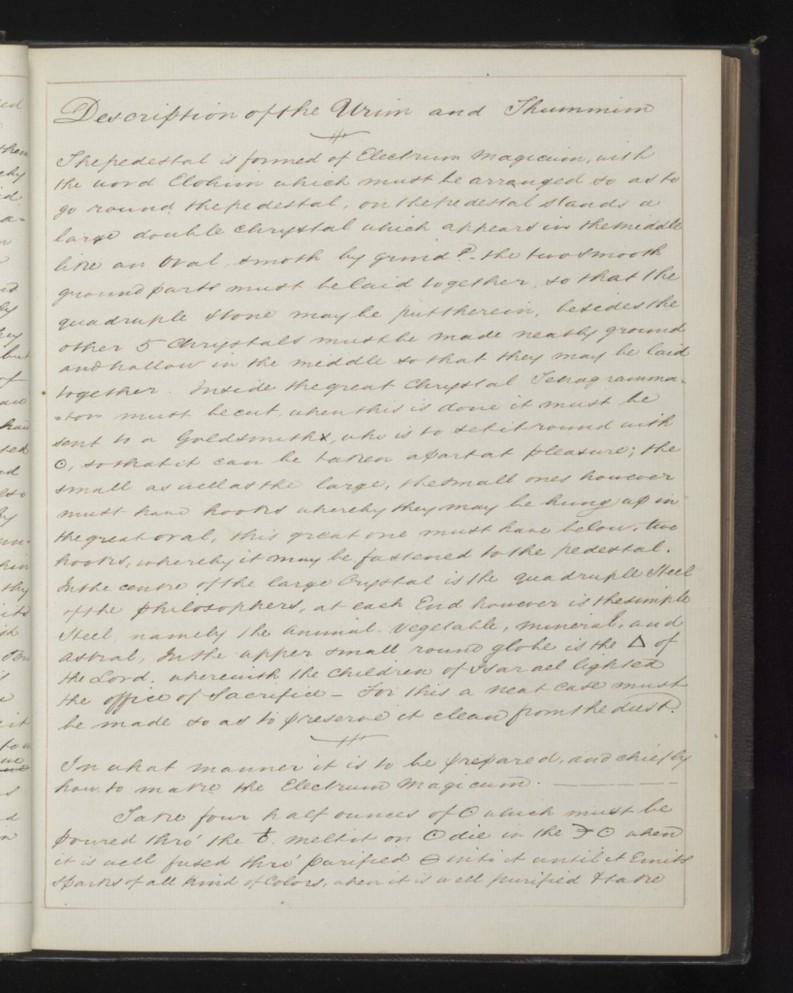 Description of the Urim and Thummim
The pedestal is formed of Electrum Magicum, with
the word Elohim which must be arranged so as to
go round the pedestal, on the pedestal stands a
large double Chrystal which appears in the middle
like an Oval, smoth by grind g. the two smooth
ground parts must be laid together, so that the
quadruple Stone may be put therein, besides the
other 5 Chrystals must be made neatly ground
and hallow in the middle so that they may be laid
together. Inside the great Chrystal Tetragramma-
-ton must be cut, when this is done it must be
sent to a Goldsmith x, who is to set it round with
☉, so that it can be taken apart at pleasure; the
small as well as the large, the small ones however
must have hooks whereby they may be hung up in
the great oval, this great one must have below, two
hooks, whereby it may be fastened to the pedestal.
In the centre of the large Crystal is the quadruple Steel
of the philosophers, at each End however is the simple
Steel, namely the animal. Vegetable, mineral, and
astral, In the upper small round globe is the △ of
the Lord. wherewith the Children of Israel lighted
the office of Sacrifice - For this a neat case must
be made so as to preserve it clean from the dust.
In what manner it is to be prepared, and chiefly
how to make the Electrum Magicum.
Take four half ounces of ☉ which must be
poured thro' the ♁. melt it on ☉ die in the ☉ when
it is well fused thro' purified ⊖ into it until it Emits
Sparks of all kind of Colors, when it is well purified take